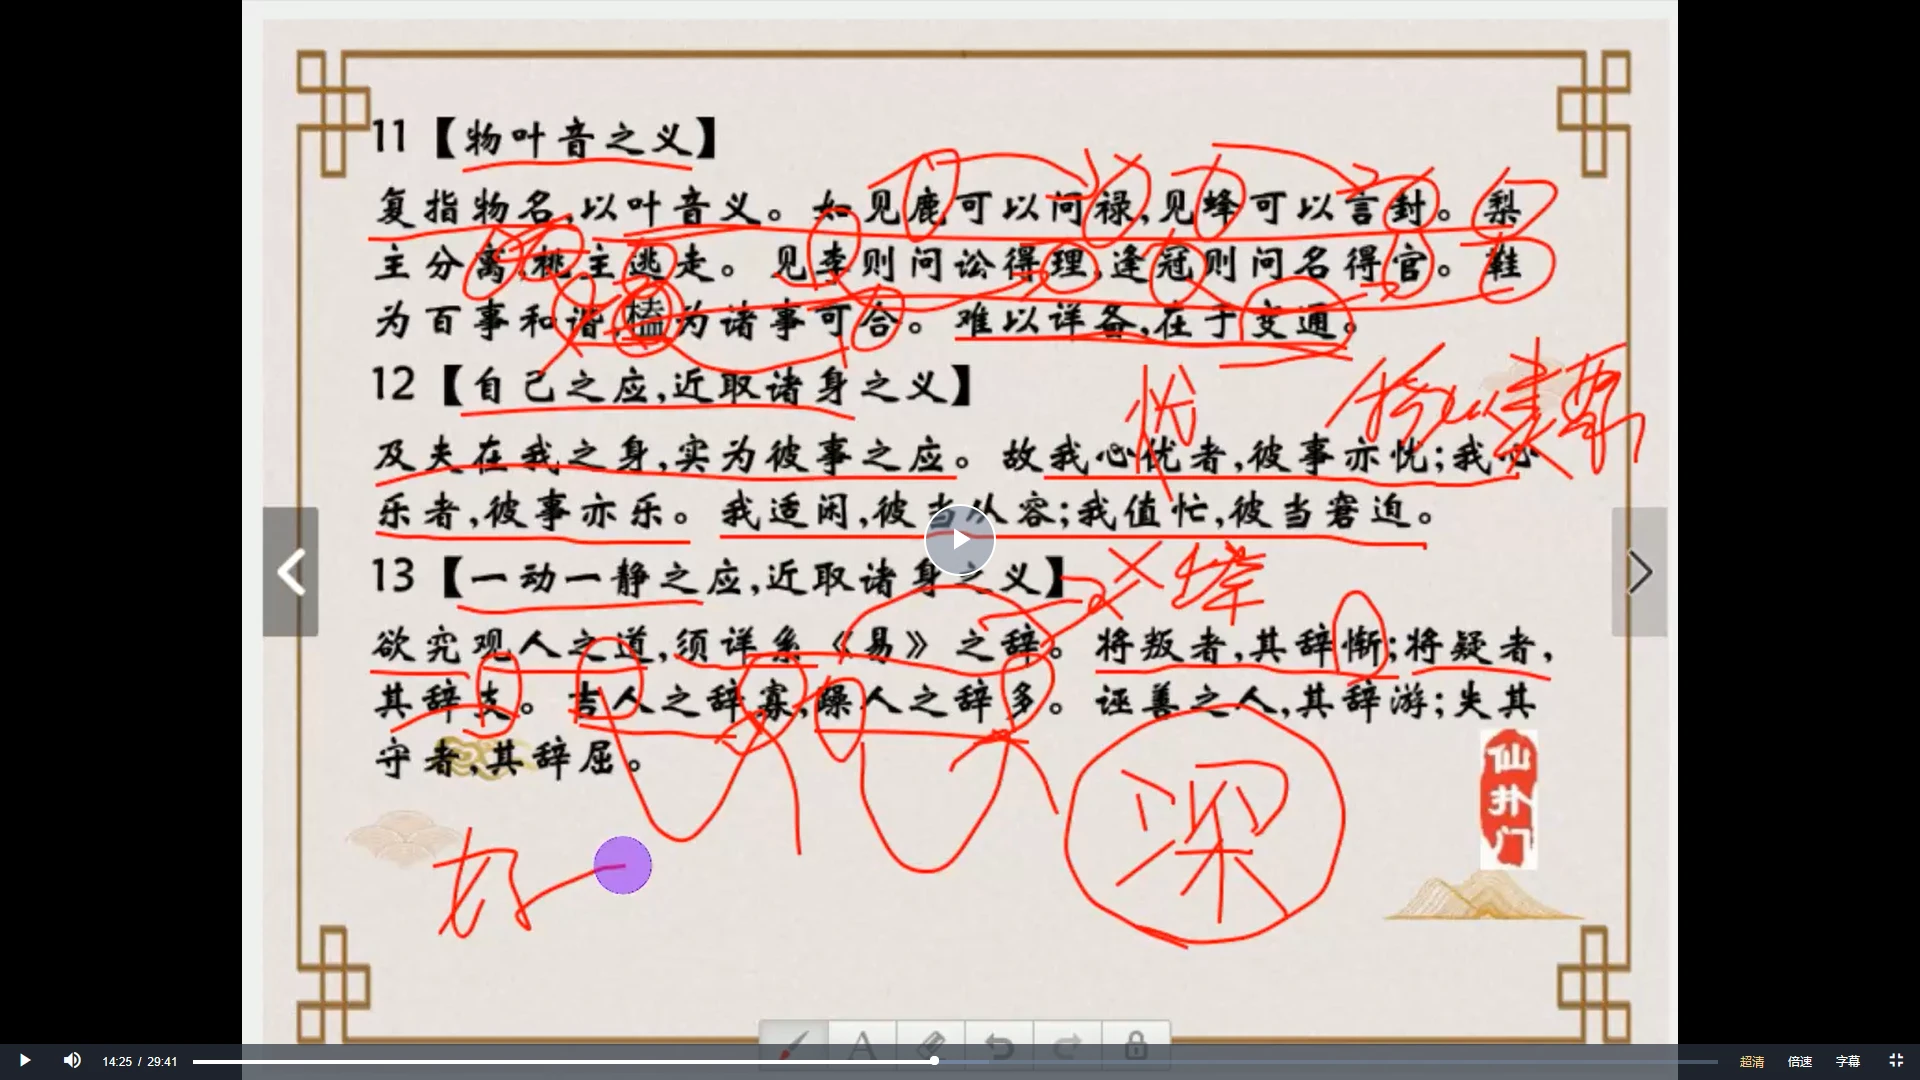 11【物叶音之义】
复指物名,以叶音义。如见鹿可以问禄,见蜂可以言封。梨
主分离,桃主逃走。见李则问讼得理,逢冠则问名得官。鞋
为百事和谐,榼为诸事可合。难以详备,在于变通。
忧
12【自己之应,近取诸身之义】
及夫在我之身,实为彼事之应。故我心优者,彼事亦忧;我心
乐者,彼事亦乐。我适闲,彼当从容;我值忙,彼当窘迫。
13【一动一静之应,近取诸身之义】
欲究观人之道,须详系《易》之辞。将叛者,其辞惭;将疑者,
其辞支。吉人之辞寡,躁人之辞多。诬善之人,其辞游;失其
守者,其辞屈。
深
仙井门
14:25 / 29:41
超清 倍速 字幕